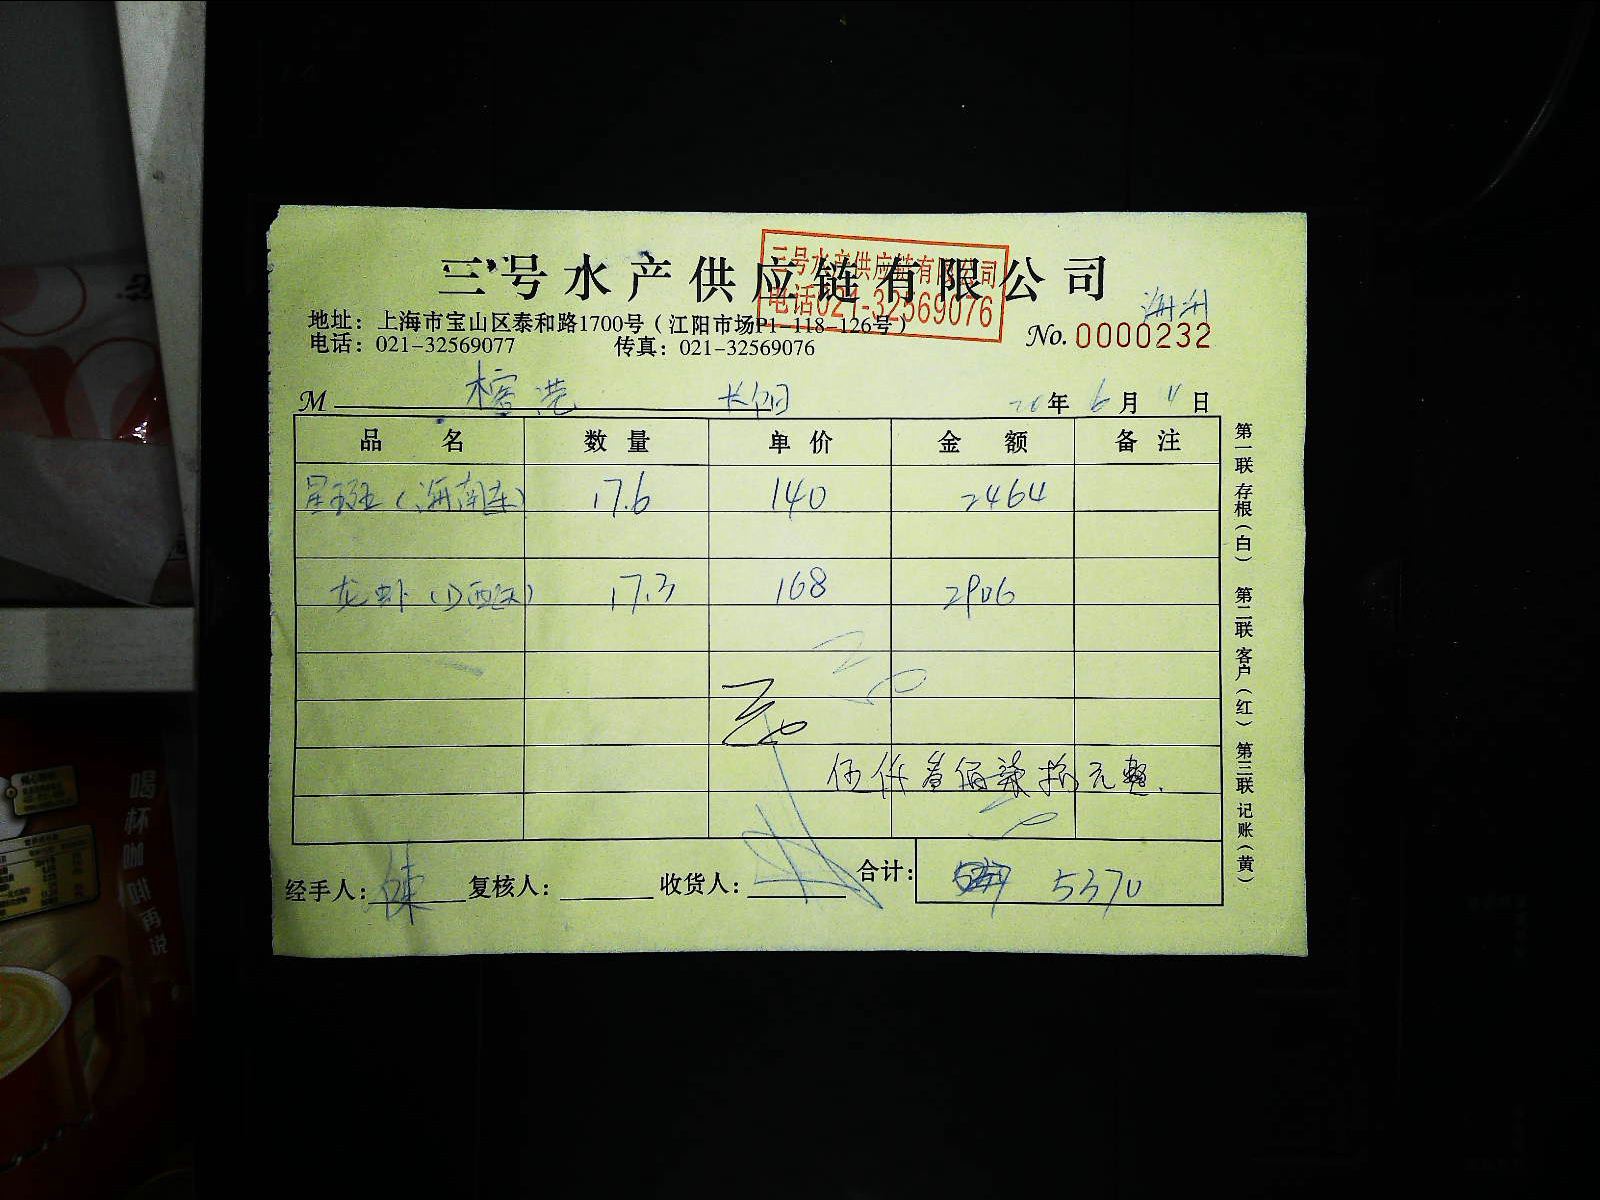 三号水产供应链有限公司
三号水产供应链有限公司
电话021-32569076
地址：上海市宝山区泰和路1700号（江阳市场P1-118-126号）
电话：021-32569077 传真：021-32569076
No. 0000232
M
20年 6月 11日
品名 数量 单价 金额 备注
星斑（海南 17.6 140 2464
龙虾（ 17.3 168 2906
伍仟叁佰柒拾元整.
经手人：陈 复核人： 收货人： 合计： 5370
第一联 存根（白） 第二联 客户（红） 第三联 记账（黄）
喝杯咖啡再说